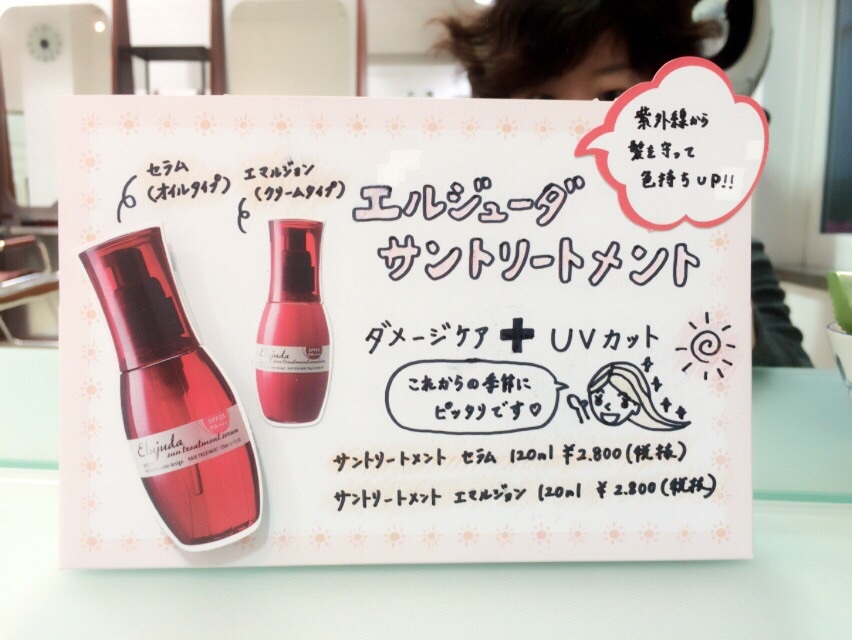 紫外線から
髪を守って
色持ちUP!!
セラム
(オイルタイプ)
エマルジョン
(クリームタイプ)
エルジューダ
サントリートメント
ダメージケア + UVカット
これからの季節に
ピッタリです♡
サントリートメント セラム 120ml ¥2.800(税抜)
サントリートメント エマルジョン 120ml ¥2.800(税抜)
Elujuda
sun treatment serum
Elujuda